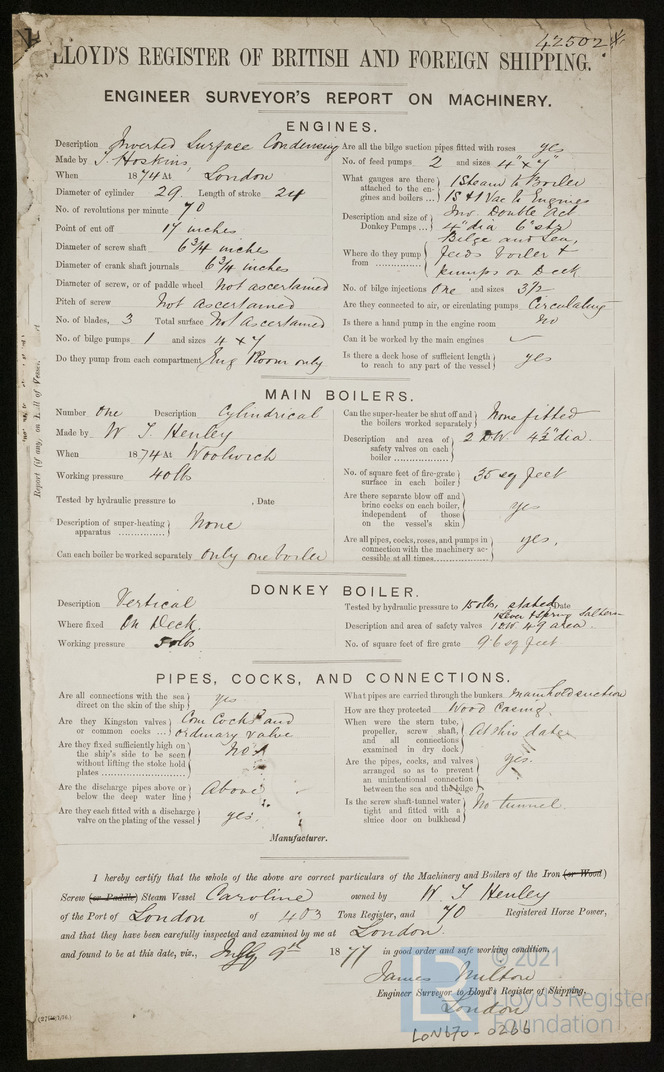 42502
LLOYD'S REGISTER OF BRITISH AND FOREIGN SHIPPING.
ENGINEER SURVEYOR'S REPORT ON MACHINERY.
ENGINES.
Description Inverted Surface Condensing
Made by J. Hoskins
When 1874 At London
Diameter of cylinder 29. Length of stroke 24
No. of revolutions per minute 70
Point of cut off 17 inches
Diameter of screw shaft 6 3/4 inches
Diameter of crank shaft journals 6 3/4 inches
Diameter of screw, or of paddle wheel Not ascertained
Pitch of screw Not ascertained
No. of blades, 3 Total surface Not Ascertained
No. of bilge pumps 1 and sizes 4 x 7
Do they pump from each compartment Eng Room only
Are all the bilge suction pipes fitted with roses yes
No. of feed pumps 2 and sizes 4" x 7"
What gauges are there attached to the engines and boilers ... 1 Steam to Boiler
1 S & 1 Vac to Engines
Description and size of Donkey Pumps ... Inv. Double Act
4" dia 6" str
Where do they pump from Bilge and Sea,
feeds boiler &
pumps on Deck
No. of bilge injections One and sizes 3 1/2
Are they connected to air, or circulating pumps Circulating
Is there a hand pump in the engine room No
Can it be worked by the main engines
Is there a deck hose of sufficient length to reach to any part of the vessel yes
Report (if any, on Hull of Vessel
MAIN BOILERS.
Number One Description Cylindrical
Made by W T Henley
When 1874 At Woolwich
Working pressure 40 lbs
Tested by hydraulic pressure to , Date
Description of super-heating apparatus None
Can each boiler be worked separately Only one boiler
Can the super-heater be shut off and the boilers worked separately None fitted
Description and area of safety valves on each boiler 2 D.W. 4 1/2" dia.
No. of square feet of fire-grate surface in each boiler 35 sq feet
Are there separate blow off and brine cocks on each boiler, independent of those on the vessel's skin yes
Are all pipes, cocks, roses, and pumps in connection with the machinery accessible at all times yes,
DONKEY BOILER.
Description Vertical
Where fixed On Deck.
Working pressure 50 lbs
Tested by hydraulic pressure to 150 lbs, stated Date
Lever & Spring
Description and area of safety valves 1 D.W. 4.9 area.
No. of square feet of fire grate 9.6 sq feet
PIPES, COCKS, AND CONNECTIONS.
Are all connections with the sea direct on the skin of the ship yes
Are they Kingston valves or common cocks ... Com Cocks and
ordinary valve
Are they fixed sufficiently high on the ship's side to be seen without lifting the stoke hold plates No
Are the discharge pipes above or below the deep water line Above
Are they each fitted with a discharge valve on the plating of the vessel yes.
What pipes are carried through the bunkers Mainhold suction
How are they protected Wood Casing
When were the stern tube, propeller, screw shaft, and all connections examined in dry dock At this date
Are the pipes, cocks, and valves arranged so as to prevent an unintentional connection between the sea and the bilge yes.
Is the screw shaft-tunnel water tight and fitted with a sluice door on bulkhead No tunnel
Manufacturer.
I hereby certify that the whole of the above are correct particulars of the Machinery and Boilers of the Iron (or Wood)
Screw (or Paddle) Steam Vessel Caroline owned by W T Henley
of the Port of London of 403 Tons Register, and 70 Registered Horse Power,
and that they have been carefully inspected and examined by me at London
and found to be at this date, viz., July 9th 1877 in good order and safe working condition,
James Milton
Engineer Surveyor to Lloyd's Register of Shipping,
London
LON670-0266
© 2021
Lloyd's Register
Foundation